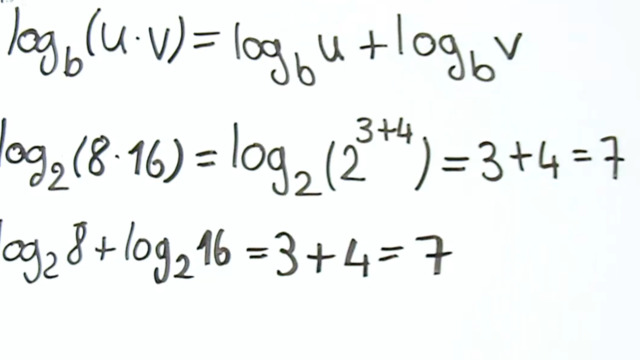 log_b(u·v) = log_b u + log_b v
log_2(8·16) = log_2(2^{3+4}) = 3+4 = 7
log_2 8 + log_2 16 = 3+4 = 7